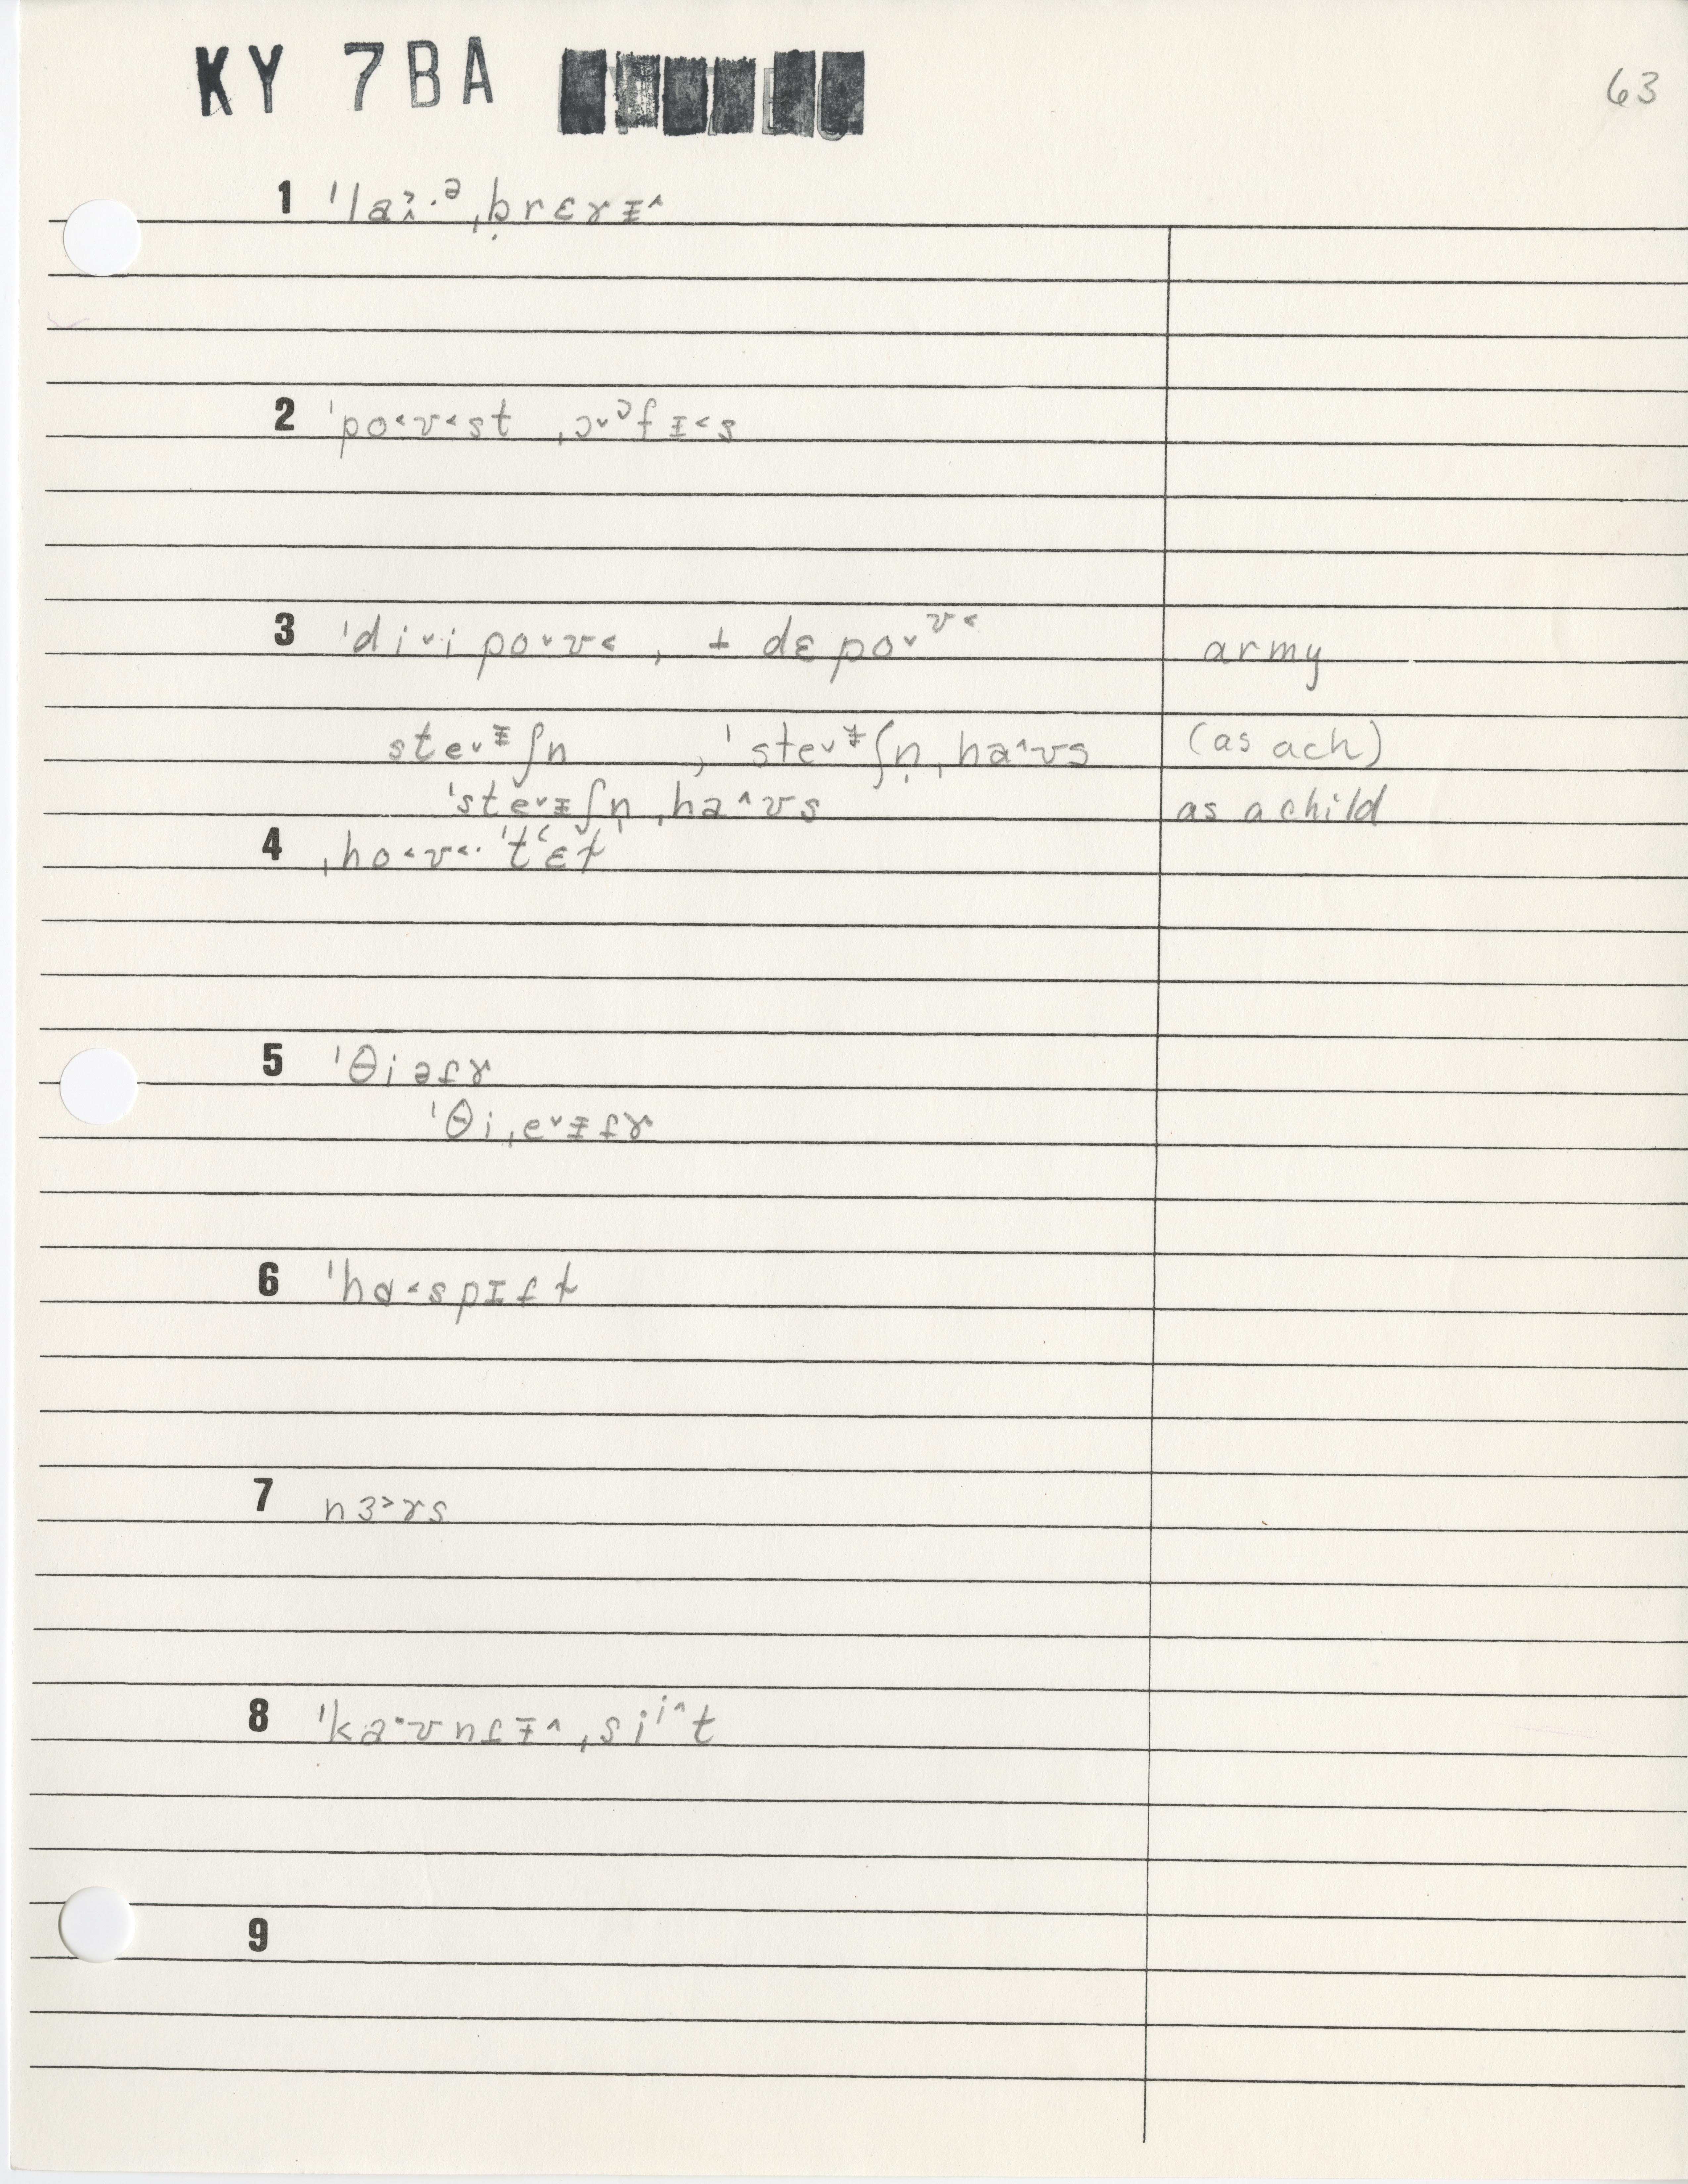 KY 7BA
63
1 ˈlaɪ·ᵊˌbrɛɤᵻ^
2 ˈpo<ʊ<st ˌɔ˅ᵓfᵻ<s
3 ˈdi˅i po˅ʊ<, + dɛ po˅ʊ< army
ste˅ᵻʃn , ˈste˅ᵻʃn̩ˌha^ʊs (as ach)
ˈste˅ᵻʃn̩ˌha^ʊs as a child
4 ˌho<ʊ<· ˈtʻɛɫ
5 ˈθiəɾɤ
ˈθiˌe˅ᵻɾɤ
6 ˈhɑ<spɪɾɫ
7 nɜ>ɤs
8 ˈka·ʊnɾᵻ^ˌsiⁱ^t
9